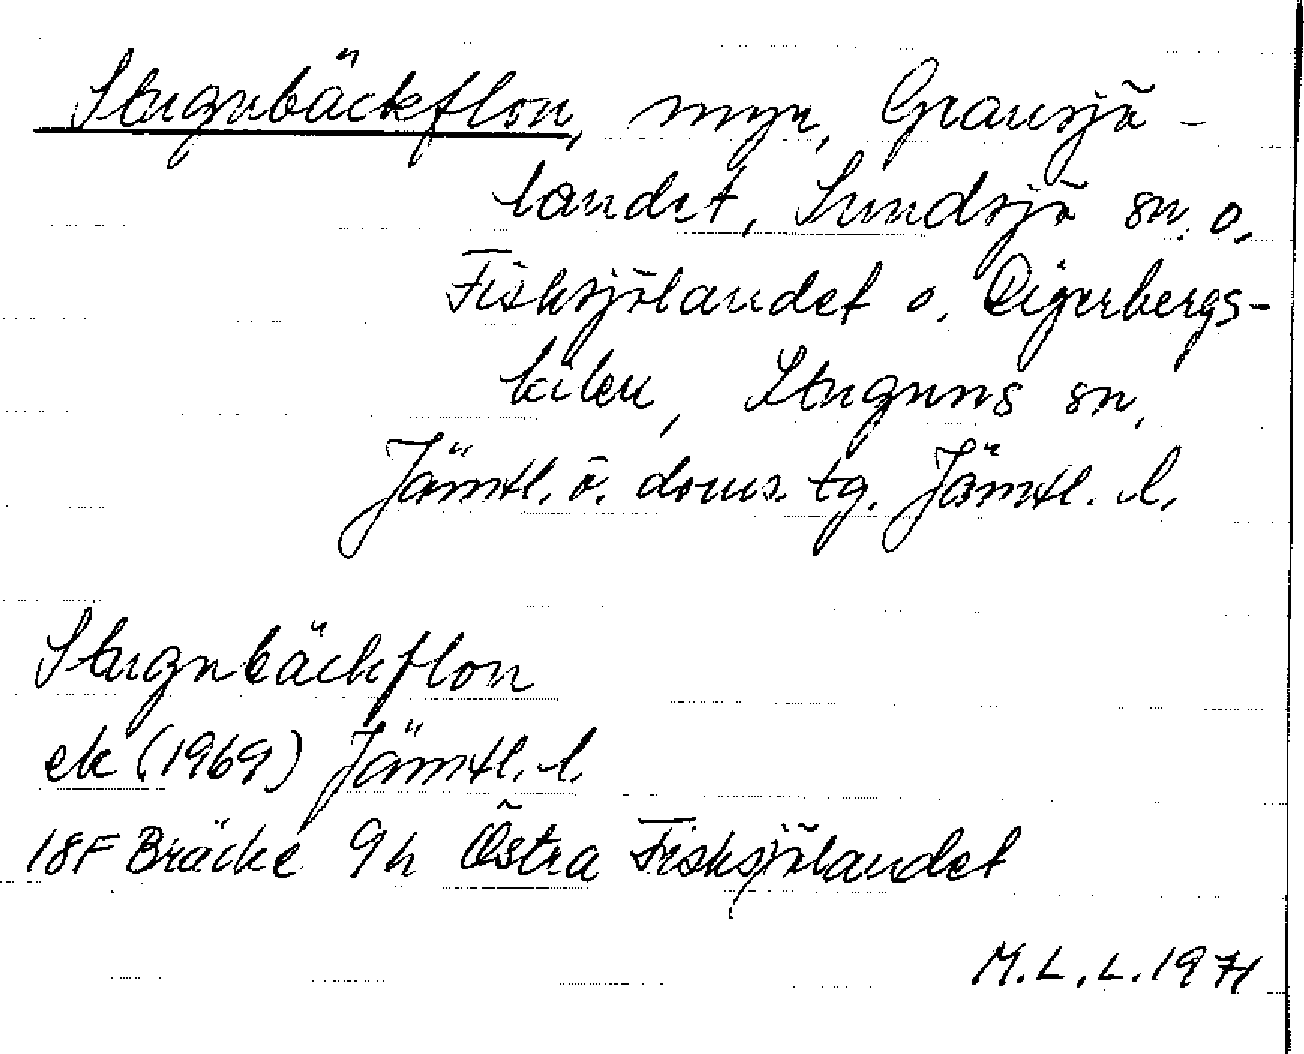 Stugubäckflon, myr, Gransjö-
landet, Sundsjö sn. o.
Fisksjölandet o. Digerbergs-
kilen, Stuguns sn,
Jämtl. ö. doms. tg. Jämtl. l.
Stugubäckflon
ek (1969) Jämtl. l.
18F Bräcke 9h Östra Fisksjölandet
M.L.L. 1971